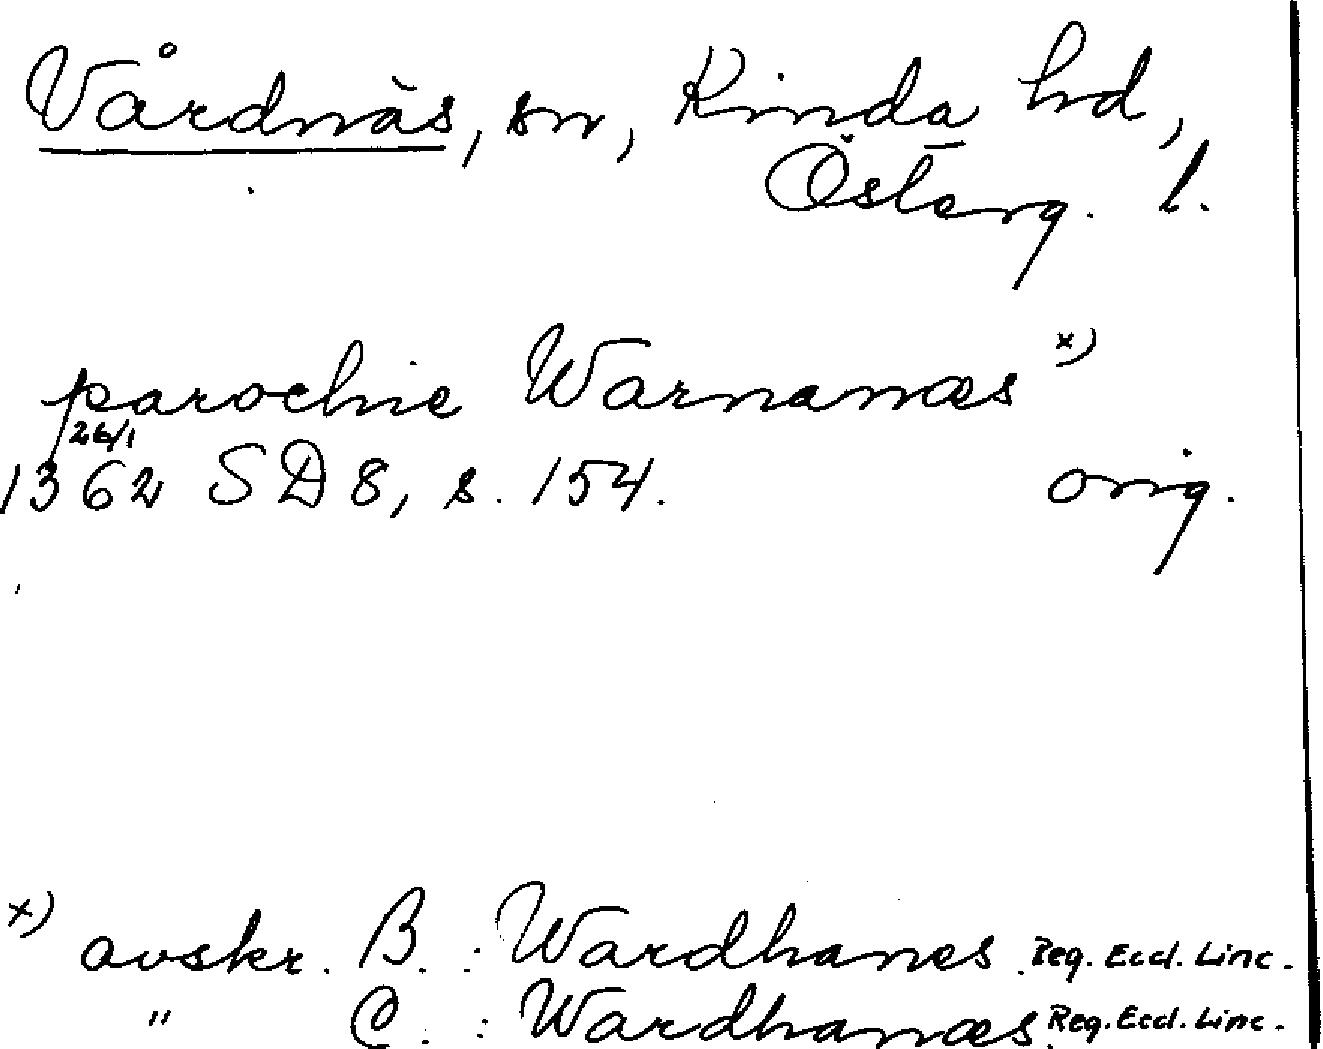 Vårdnäs, sn, Kinda hd,
Österg. l.
parochie Warnanæs x)
26/1
1362 SD 8, s. 154. orig.
x) avskr. B. : Wardhanes Reg. Eccl. Linc.
" C. : Wardhanæs Reg. Eccl. Linc.